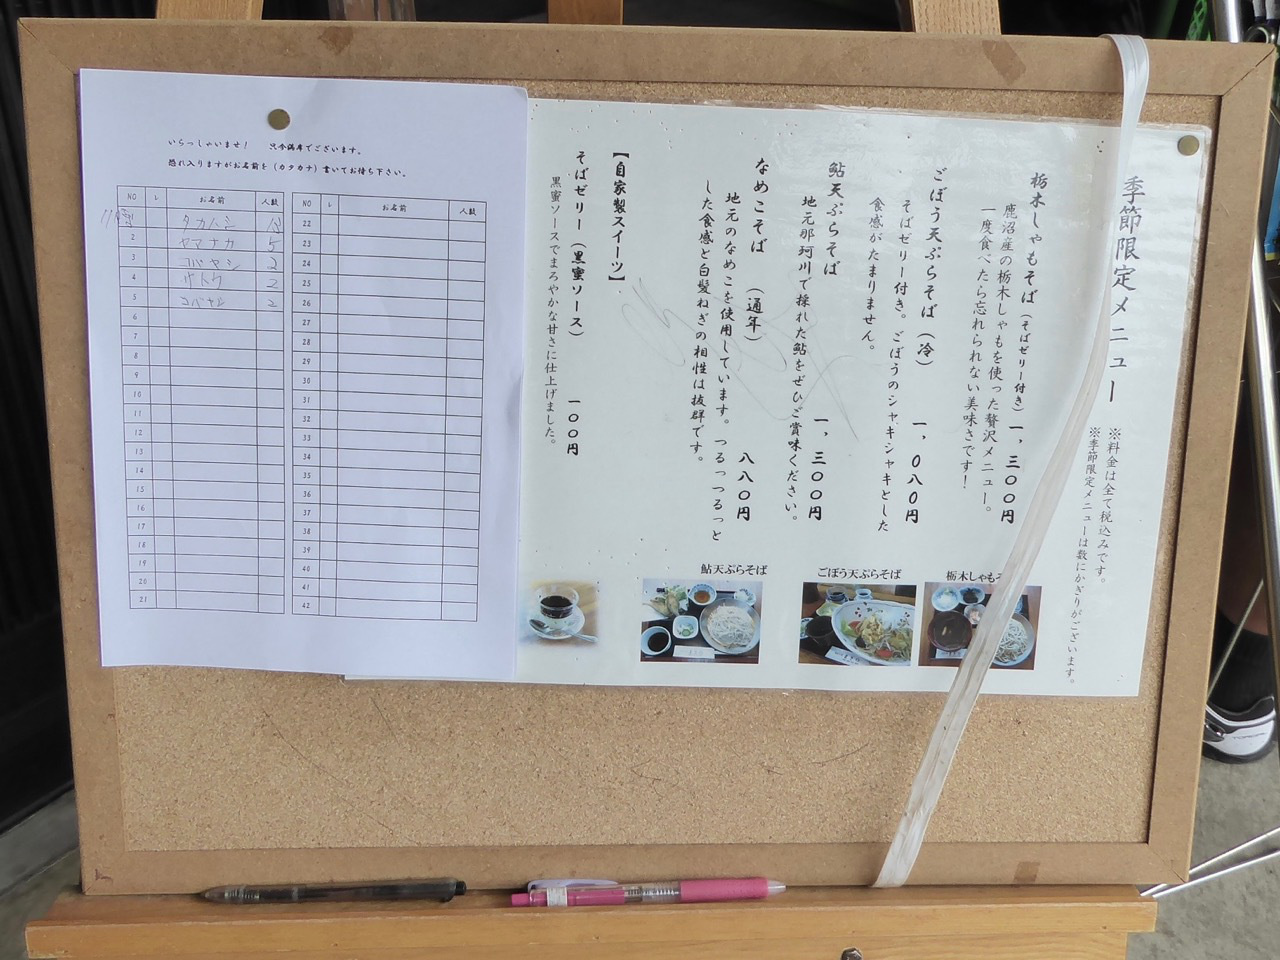 いらっしゃいませ! 只今満席でございます。
恐れ入りますがお名前を(カタカナ)書いてお待ち下さい。
NO レ お名前 人数
タカハシ
2 ヤマナカ 5
3 コバヤシ 2
4 サトウ 2
5 コバヤシ 2
6
7
8
9
10
11
12
13
14
15
16
17
18
19
20
21
NO レ お名前 人数
22
23
24
25
26
27
28
29
30
31
32
33
34
35
36
37
38
39
40
41
42
季節限定メニュー
※料金は全て税込みです。
※季節限定メニューは数にかぎりがございます。
栃木しゃもそば(そばゼリー付き)一、三〇〇円
鹿沼産の栃木しゃもを使った贅沢メニュー。
一度食べたら忘れられない美味さです!
ごぼう天ぷらそば(冷) 一、〇八〇円
そばゼリー付き。ごぼうのシャキシャキとした
食感がたまりません。
鮎天ぷらそば 一、三〇〇円
地元那珂川で採れた鮎をぜひご賞味ください。
なめこそば (通年) 八八〇円
地元のなめこを使用しています。つるっつるっと
した食感と白髪ねぎの相性は抜群です。
【自家製スイーツ】
そばゼリー(黒蜜ソース) 一〇〇円
黒蜜ソースでまろやかな甘さに仕上げました。
鮎天ぷらそば
ごぼう天ぷらそば
栃木しゃもそ